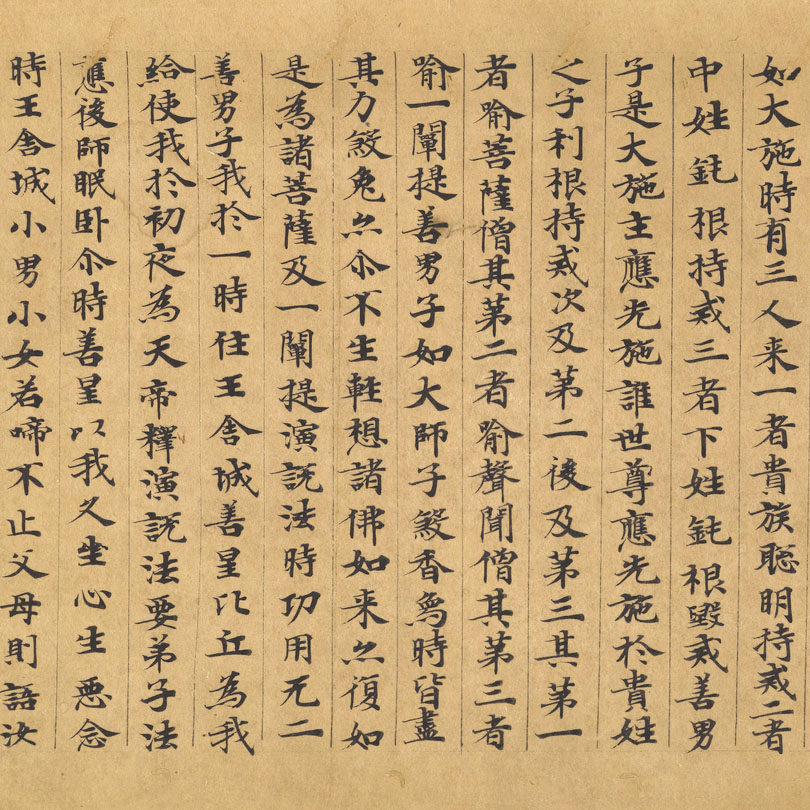 如大施時有三人来一者貴族聡明持戒二者
中姓鈍根持戒三者下姓鈍根毀戒善男
子是大施主應先施誰世尊應先施於貴姓
之子利根持戒次及第二後及第三其第一
者喻菩薩僧其第二者喻聲聞僧其第三者
喻一闡提善男子如大師子煞香爲時皆盡
其力煞兔亦尒不生輕想諸佛如来亦復如
是為諸菩薩及一闡提演說法時功用无二
善男子我於一時住王舍城善星比丘為我
給使我於初夜為天帝釋演說法要弟子法
應後師眠卧尒時善星以我久坐心生惡念
時王舍城小男小女若啼不止父母則語汝